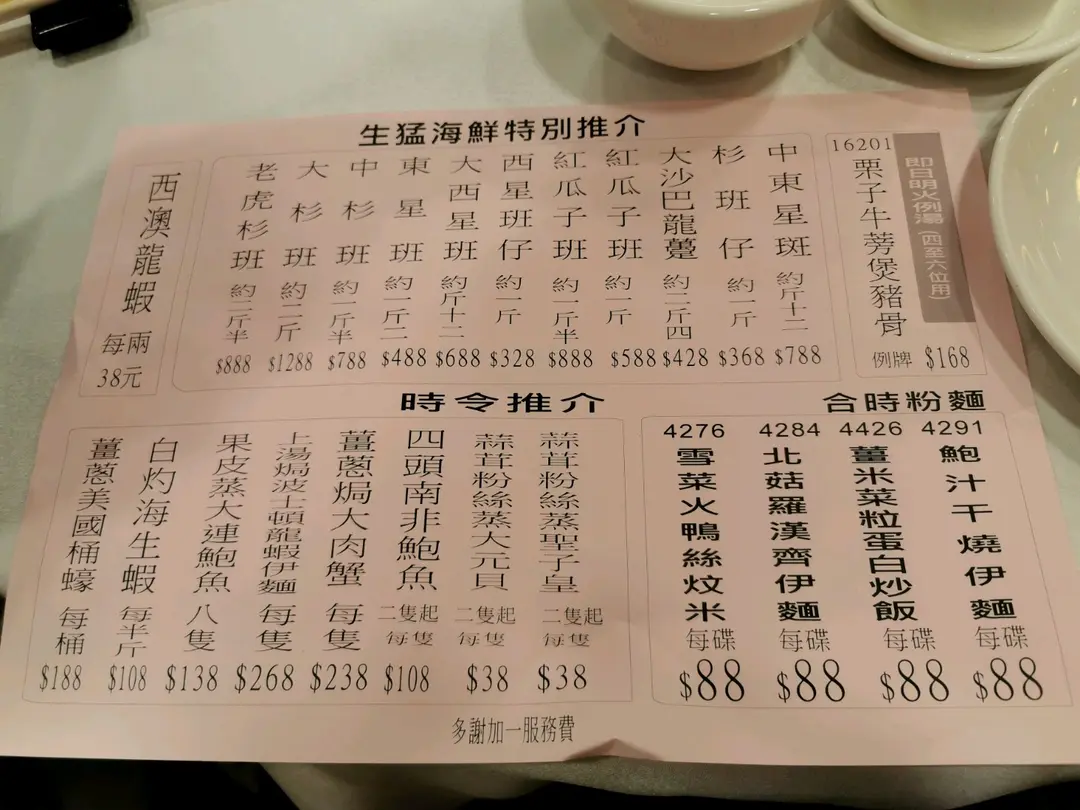 生猛海鮮特別推介
16201
即日明火例湯(四至六位用)
栗子牛蒡煲豬骨
例牌 $168
中東星斑 約斤十二 $788
杉班仔 約一斤 $368
大沙巴龍躉 約二斤四 $428
紅瓜子班 約一斤 $588
紅瓜子班 約一斤半 $888
西星班仔 約一斤 $328
大西星班 約斤十二 $688
東星班 約一斤二 $488
中杉班 約一斤半 $788
大杉班 約二斤 $1288
老虎杉班 約二斤半 $888
西澳龍蝦 每兩38元
時令推介
蒜茸粉絲蒸聖子皇 二隻起 每隻 $38
蒜茸粉絲蒸大元貝 二隻起 每隻 $38
四頭南非鮑魚 二隻起 每隻 $108
薑蔥焗大肉蟹 每隻 $238
上湯焗波士頓龍蝦伊麵 每隻 $268
果皮蒸大連鮑魚 八隻 $138
白灼海生蝦 每半斤 $108
薑蔥美國桶蠔 每桶 $188
合時粉麵
4291 鮑汁干燒伊麵 每碟 $88
4426 薑米菜粒蛋白炒飯 每碟 $88
4284 北菇羅漢齊伊麵 每碟 $88
4276 雪菜火鴨絲炆米 每碟 $88
多謝加一服務費